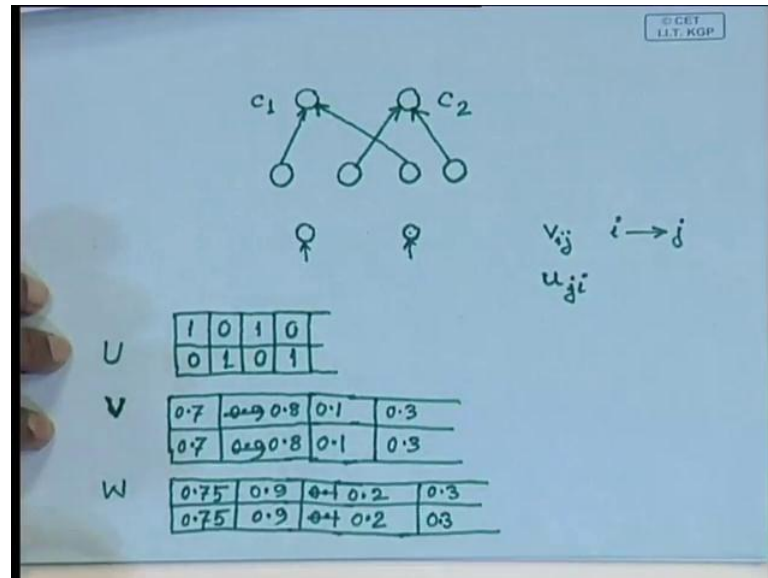 © CET
I.I.T. KGP
C1 C2
Vij i → j
uji
U
1 0 1 0
0 1 0 1
V
0.7 0.9 0.8 0.1 0.3
0.7 0.9 0.8 0.1 0.3
W
0.75 0.9 0.1 0.2 0.3
0.75 0.9 0.1 0.2 0.3